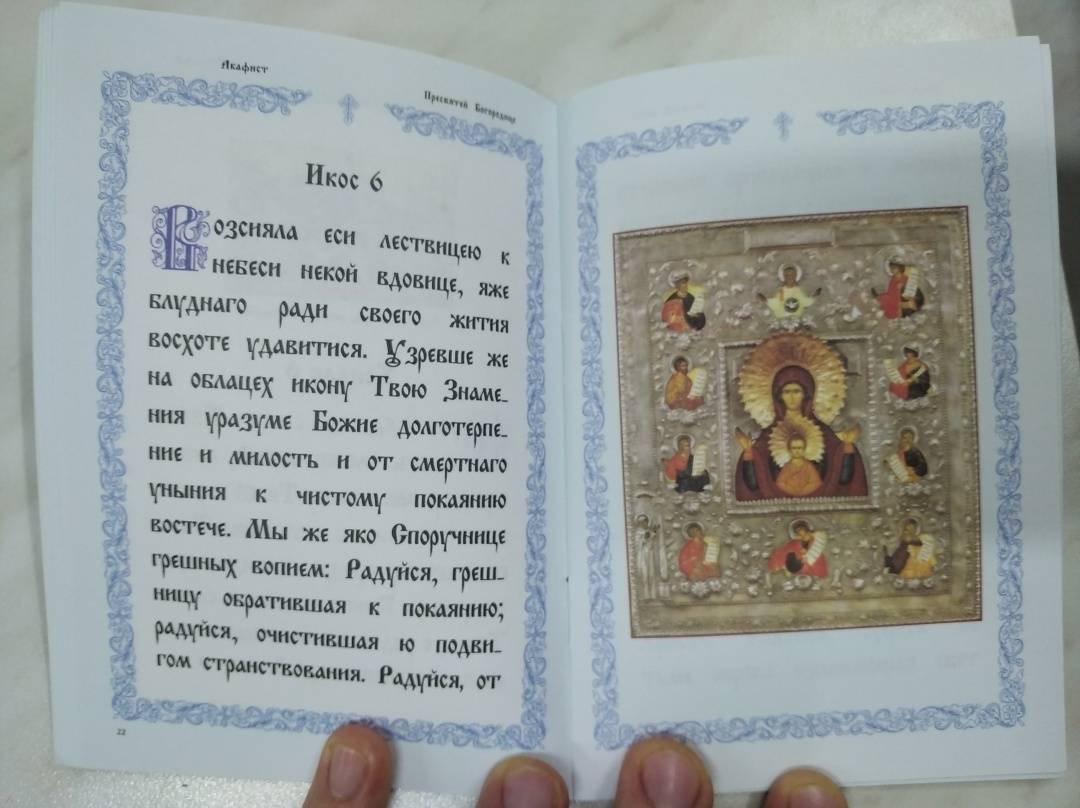 Акафист
Пресвятей Богородице
Икос 6
Возсияла еси лествицею к
небеси некой вдовице, яже
блуднаго ради своего жития
восхоте удавитися. Узревше же
на облацех икону Твою Знаме-
ния уразуме Божие долготерпе-
ние и милость и от смертнаго
уныния к чистому покаянию
востече. Мы же яко Споручнице
грешных вопием: Радуйся, греш-
ницу обратившая к покаянию;
радуйся, очистившая ю подви-
гом странствования. Радуйся, от
22